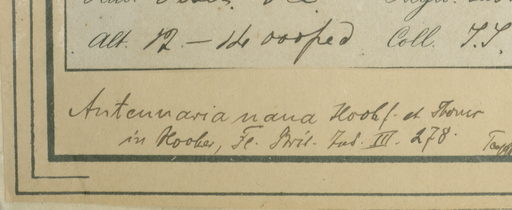 Alt. 12 – 14 000 ped Coll. T.T.
Antennaria nana Hook f. et Thoms
in Hooker, Fl. Brit. Ind. III. 278.